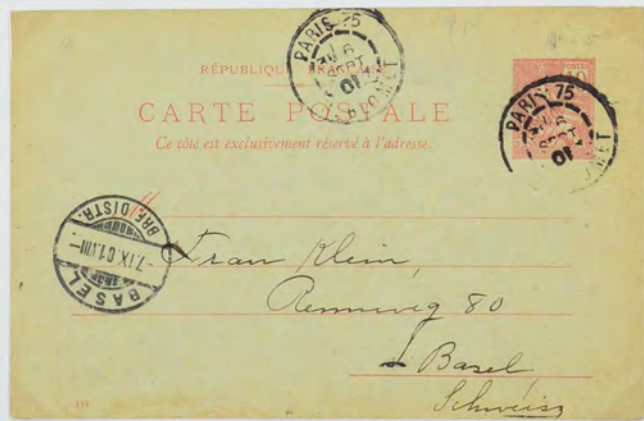 RÉPUBLIQUE FRANÇAISE
POSTES
10
CARTE POSTALE
Ce côté est exclusivement réservé à l'adresse.
PARIS 75
6
SEPT
01
R. BLOMET
PARIS 75
6
SEPT
01
BASEL
7.IX.01.VIII-
BRF. DISTR.
M
Frau Klein,
Rennweg 80
Basel
Schweiz